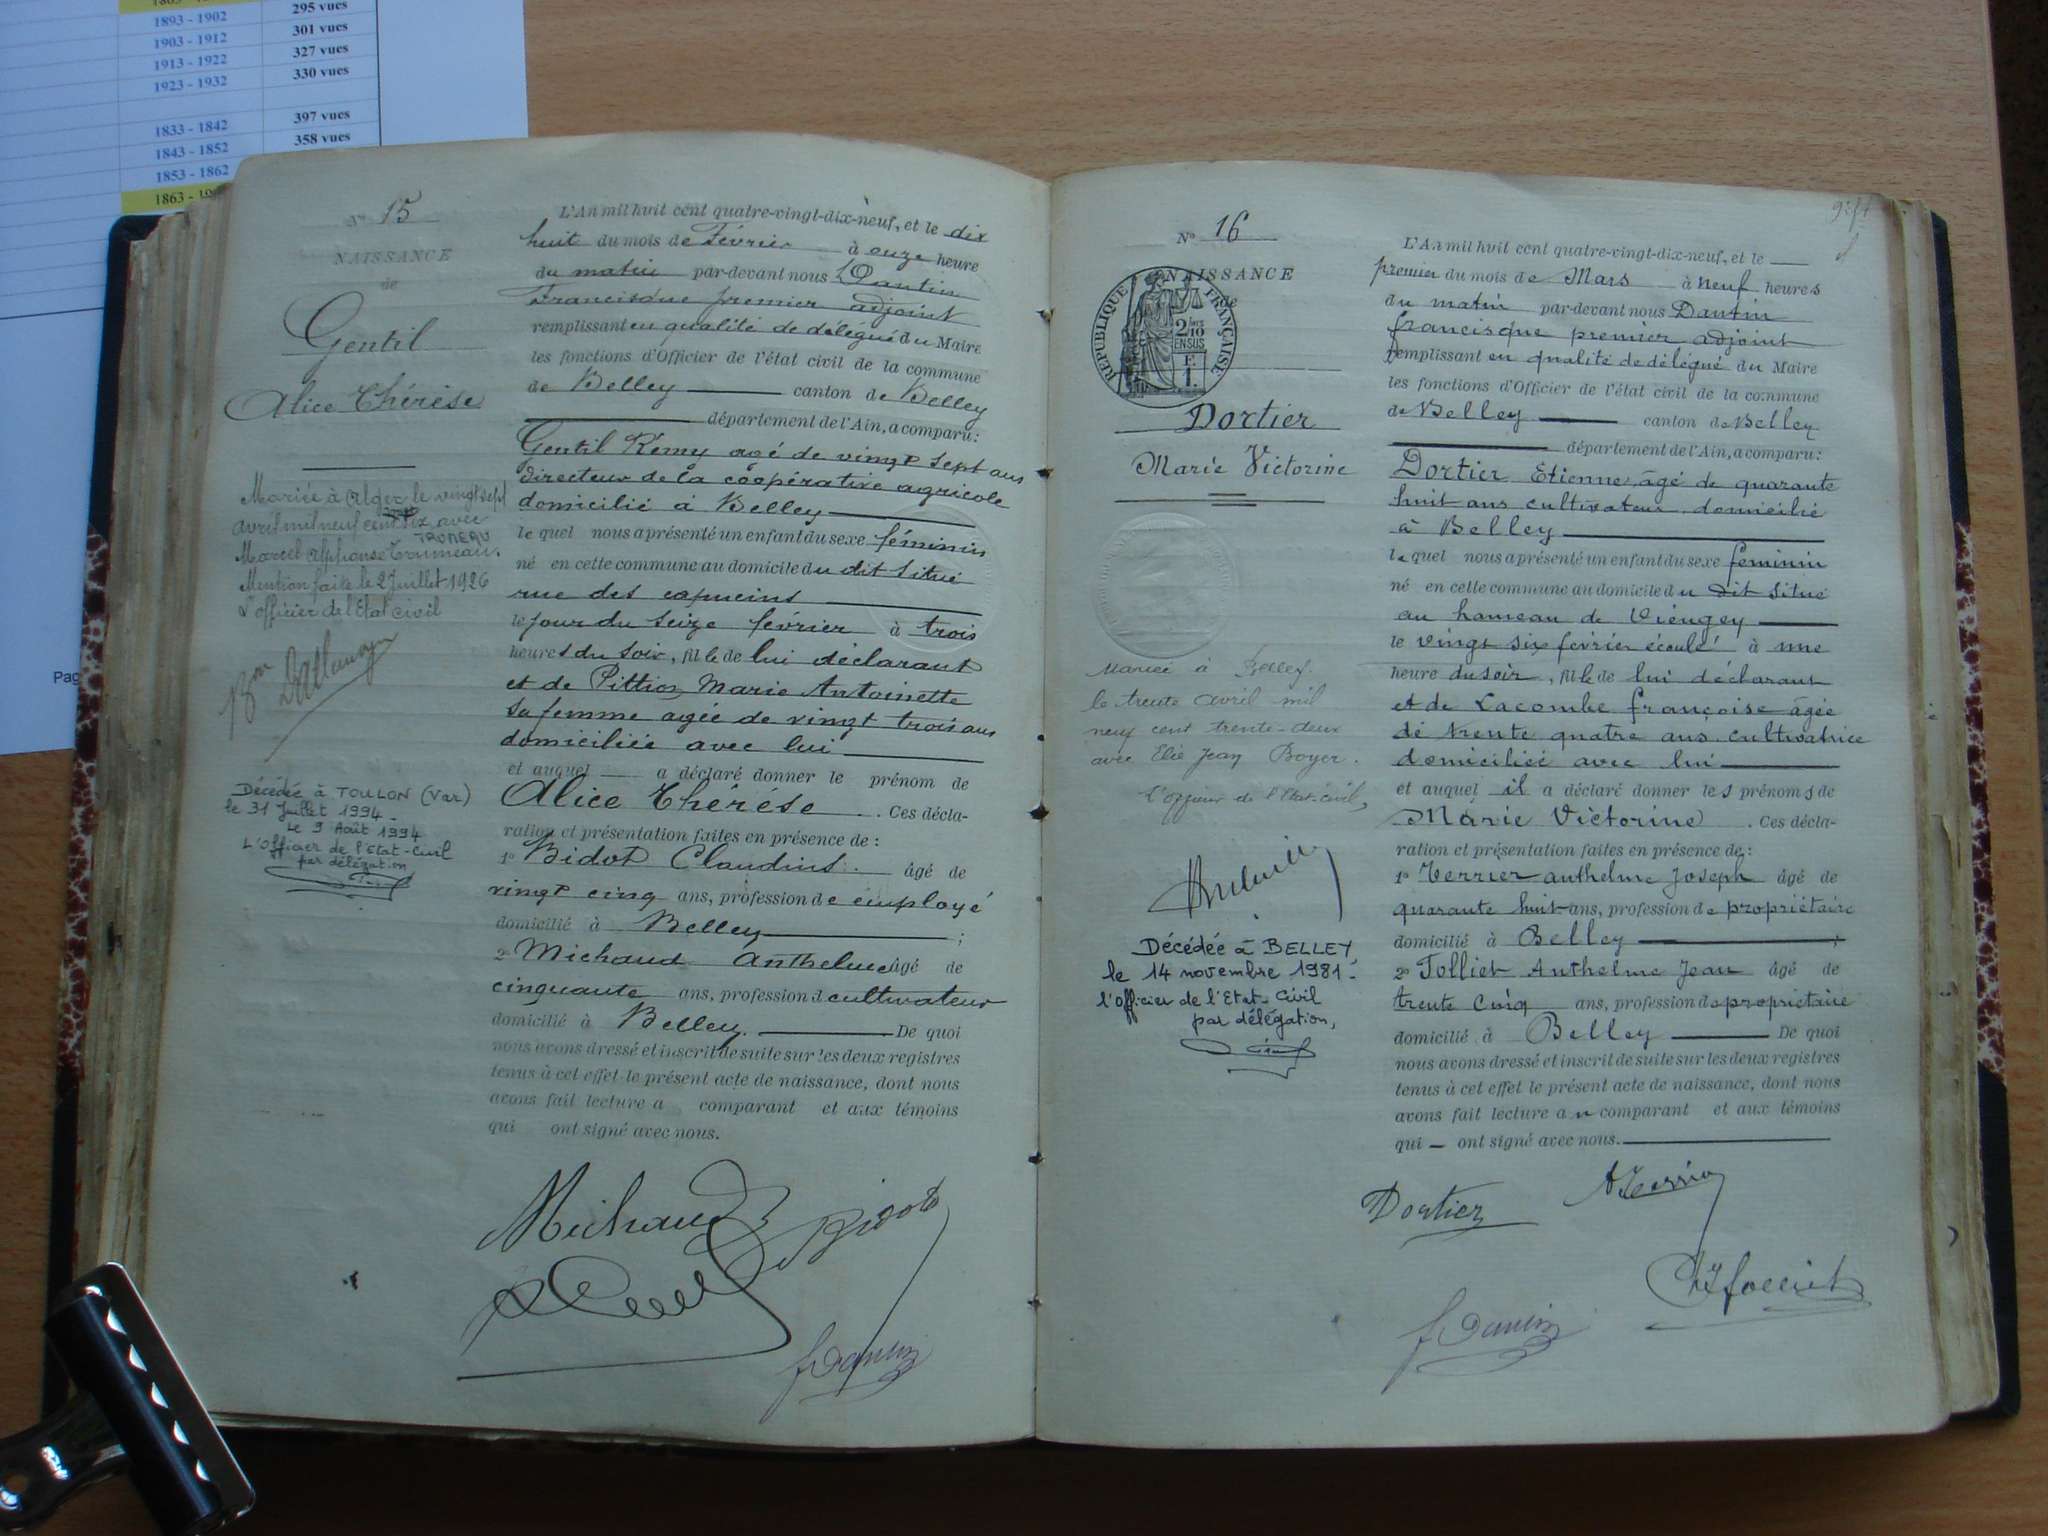 1893 - 1902 295 vues
1903 - 1912 301 vues
1913 - 1922 327 vues
1923 - 1932 330 vues
1833 - 1842 397 vues
1843 - 1852 358 vues
1853 - 1862
1863 -
Pag
N° 15
NAISSANCE
de
Gentil
Alice Thérèse
Mariée à Alger le vingt sept
avril mil neuf cent dix avec
TRUMEAU
Marcel Alphonse Trumeau.
Mention faite le 2 Juillet 1926
L'officier de l'Etat civil
Décédée à TOULON (Var)
le 31 Juillet 1994 -
Le 9 Août 1994
L'Officier de l'Etat-Civil
par délégation
L'An mil huit cent quatre-vingt-dix-neuf, et le dix
huit du mois de Février à onze heure
du matin par-devant nous Dantin
Francisque premier adjoint
remplissant en qualité de délégué du Maire
les fonctions d'Officier de l'état civil de la commune
de Belley canton de Belley
département de l'Ain, a comparu :
Gentil Rémy agé de vingt sept ans
directeur de la coopérative agricole
domicilié à Belley
le quel nous a présenté un enfant du sexe féminin
né en cette commune au domicile du dit situé
rue des capucins
le jour du seize février à trois
heures du soir, fille de lui déclarant
et de Pittion Marie Antoinette
sa femme agée de vingt trois ans
domiciliée avec lui
et auquel a déclaré donner le prénom de
Alice Thérèse . Ces décla-
ration et présentation faites en présence de :
1° Bidot Claudius âgé de
vingt cinq ans, profession de employé
domicilié à Belley ;
2° Michaud Anthelme âgé de
cinquante ans, profession d cultivateur
domicilié à Belley. De quoi
nous avons dressé et inscrit de suite sur les deux registres
tenus à cet effet le présent acte de naissance, dont nous
avons fait lecture a comparant et aux témoins
qui ont signé avec nous.
Michaud Bidot
f Dantin
N° 16
NAISSANCE
de
RÉPUBLIQUE FRANÇAISE
2/10
EN SUS
F.
1.
Dortier
Marie Victorine
Mariée à Belley.
le trente avril mil
neuf cent trente-deux
avec Elie Jean Boyer.
L'officier de l'Etat-civil,
Décédée à BELLEY,
le 14 novembre 1981 -
l'Officier de l'Etat-Civil
par délégation,
L'An mil huit cent quatre-vingt-dix-neuf, et le
premier du mois de Mars à neuf heures
du matin par-devant nous Dantin
francisque premier adjoint
remplissant en qualité de délégué du Maire
les fonctions d'Officier de l'état civil de la commune
de Belley canton de Belley
département de l'Ain, a comparu :
Dortier Etienne, âgé de quarante
huit ans cultivateur domicilié
à Belley
le quel nous a présenté un enfant du sexe feminin
né en cette commune au domicile du dit situé
au hameau de Viengey
le vingt six février écoulé à une
heure du soir, fille de lui déclarant
et de Lacombe françoise âgée
de trente quatre ans cultivatrice
domiciliée avec lui
et auquel il a déclaré donner les prénoms de
Marie Victorine . Ces décla-
ration et présentation faites en présence de :
1° Terrier anthelme Joseph âgé de
quarante huit ans, profession de propriétaire
domicilié à Belley ;
2° Folliet Anthelme Jean âgé de
trente cinq ans, profession de propriétaire
domicilié à Belley De quoi
nous avons dressé et inscrit de suite sur les deux registres
tenus à cet effet le présent acte de naissance, dont nous
avons fait lecture au comparant et aux témoins
qui ont signé avec nous.
Dortier A Terrier
Folliet
f Dantin